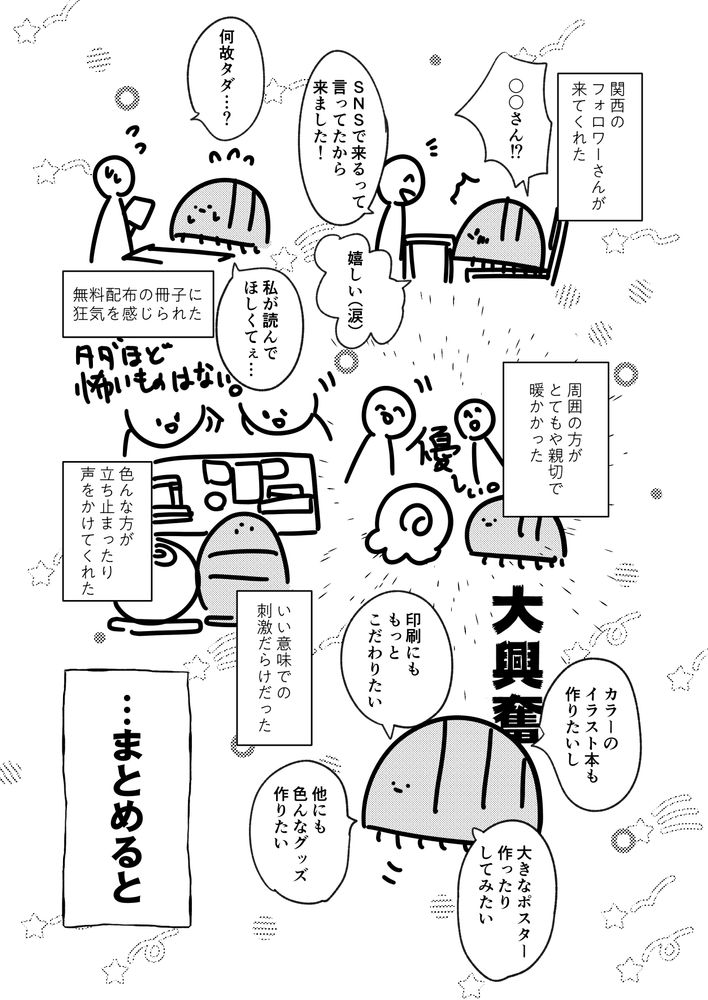 関西の
フォロワーさんが
来てくれた
○○さん!?
SNSで来るって
言ってたから
来ました!
嬉しい(涙)
何故タダ…?
私が読んで
ほしくてぇ…
無料配布の冊子に
狂気を感じられた
タダほど
怖いものはない。
周囲の方が
とてもや親切で
暖かかった
優しい。
色んな方が
立ち止まったり
声をかけてくれた
いい意味での
刺激だらけだった
大興奮
カラーの
イラスト本も
作りたいし
印刷にも
もっと
こだわりたい
大きなポスター
作ったり
してみたい
他にも
色んなグッズ
作りたい
…まとめると